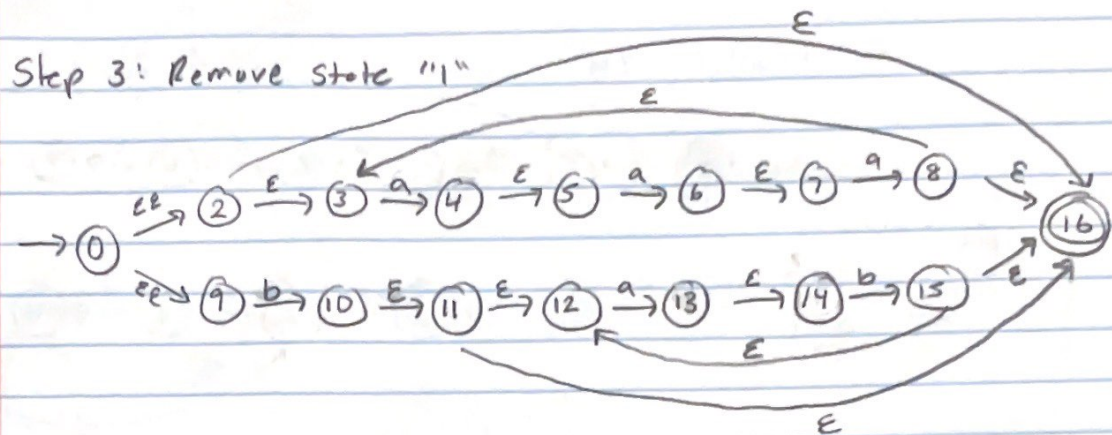 ε
Step 3: Remove state "1"
ε
εε 2 ε 3 a 4 ε 5 a 6 ε 7 a 8 ε
0 16
εε 9 b 10 ε 11 ε 12 a 13 ε 14 b 15 ε
ε
ε